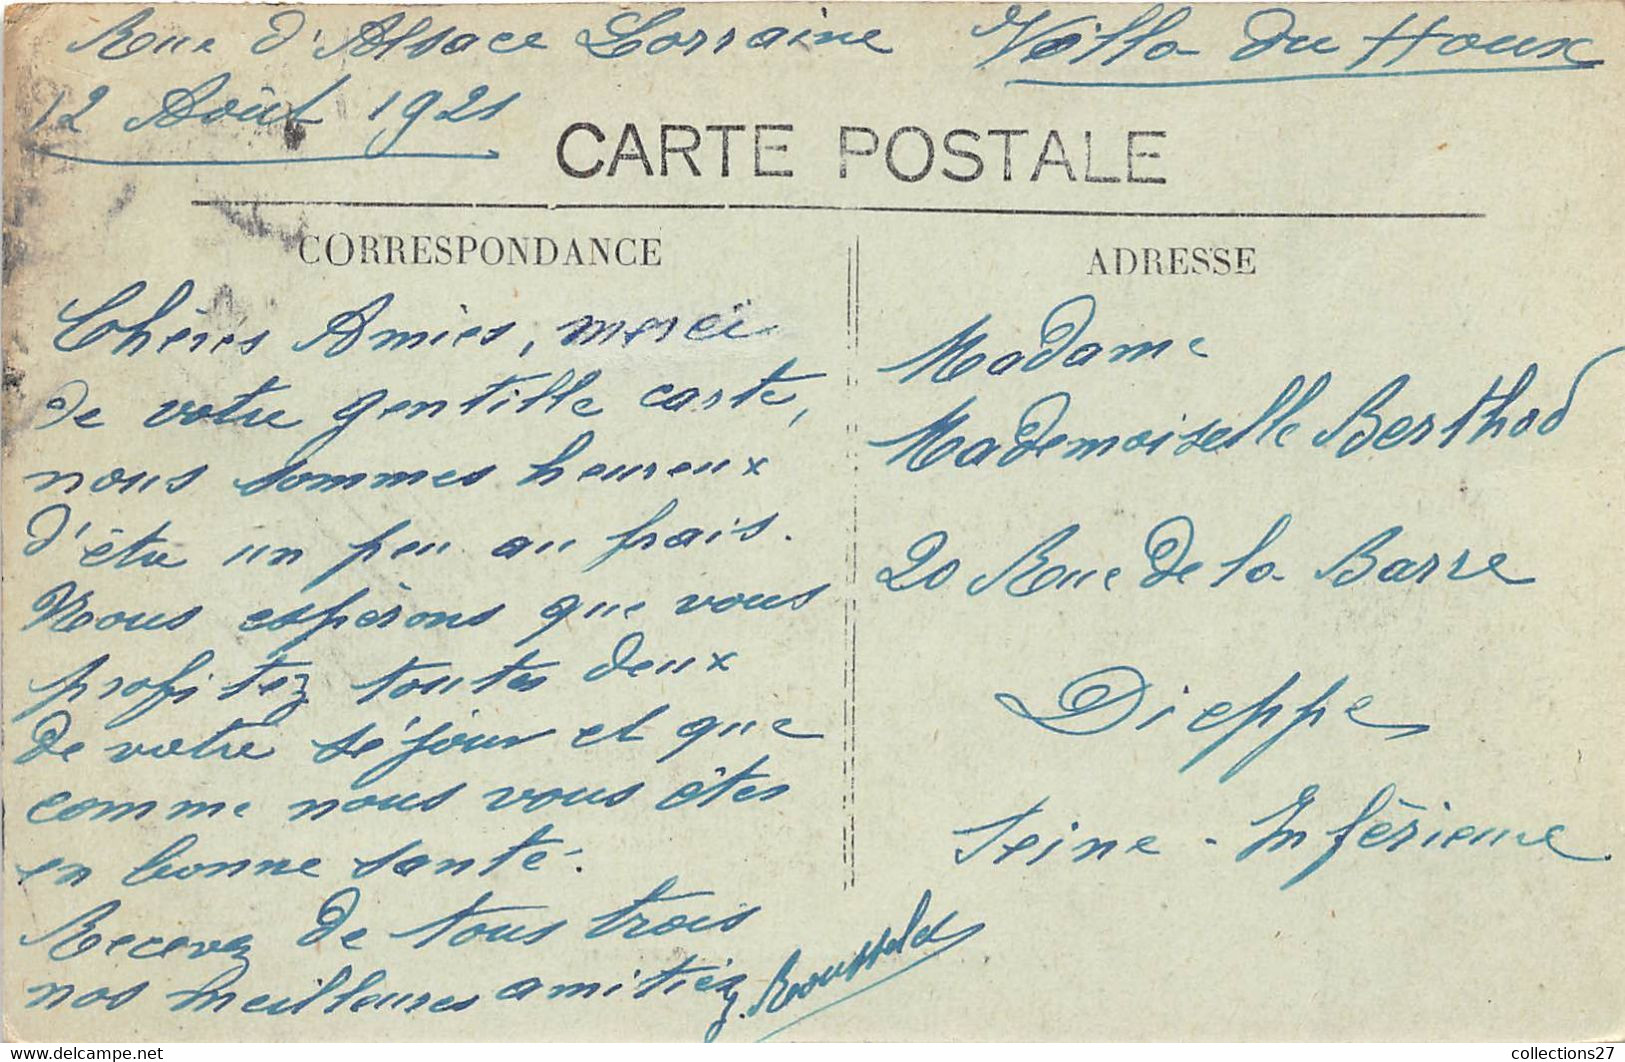 Rue d'Alsace Lorraine Villa du Houx
12 Août 1921
CARTE POSTALE
CORRESPONDANCE
Chères Amies, merci
de votre gentille carte,
nous sommes heureux
d'être un peu au frais.
Nous espérons que vous
profitez toutes deux
de votre séjour et que
comme nous vous êtes
en bonne santé.
Recevez de tous trois
nos meilleures amitiés
ADRESSE
Madame
Mademoiselle Berthod
20 Rue de la Barre
Dieppe
Seine-Inférieure
www.delcampe.net
collections27